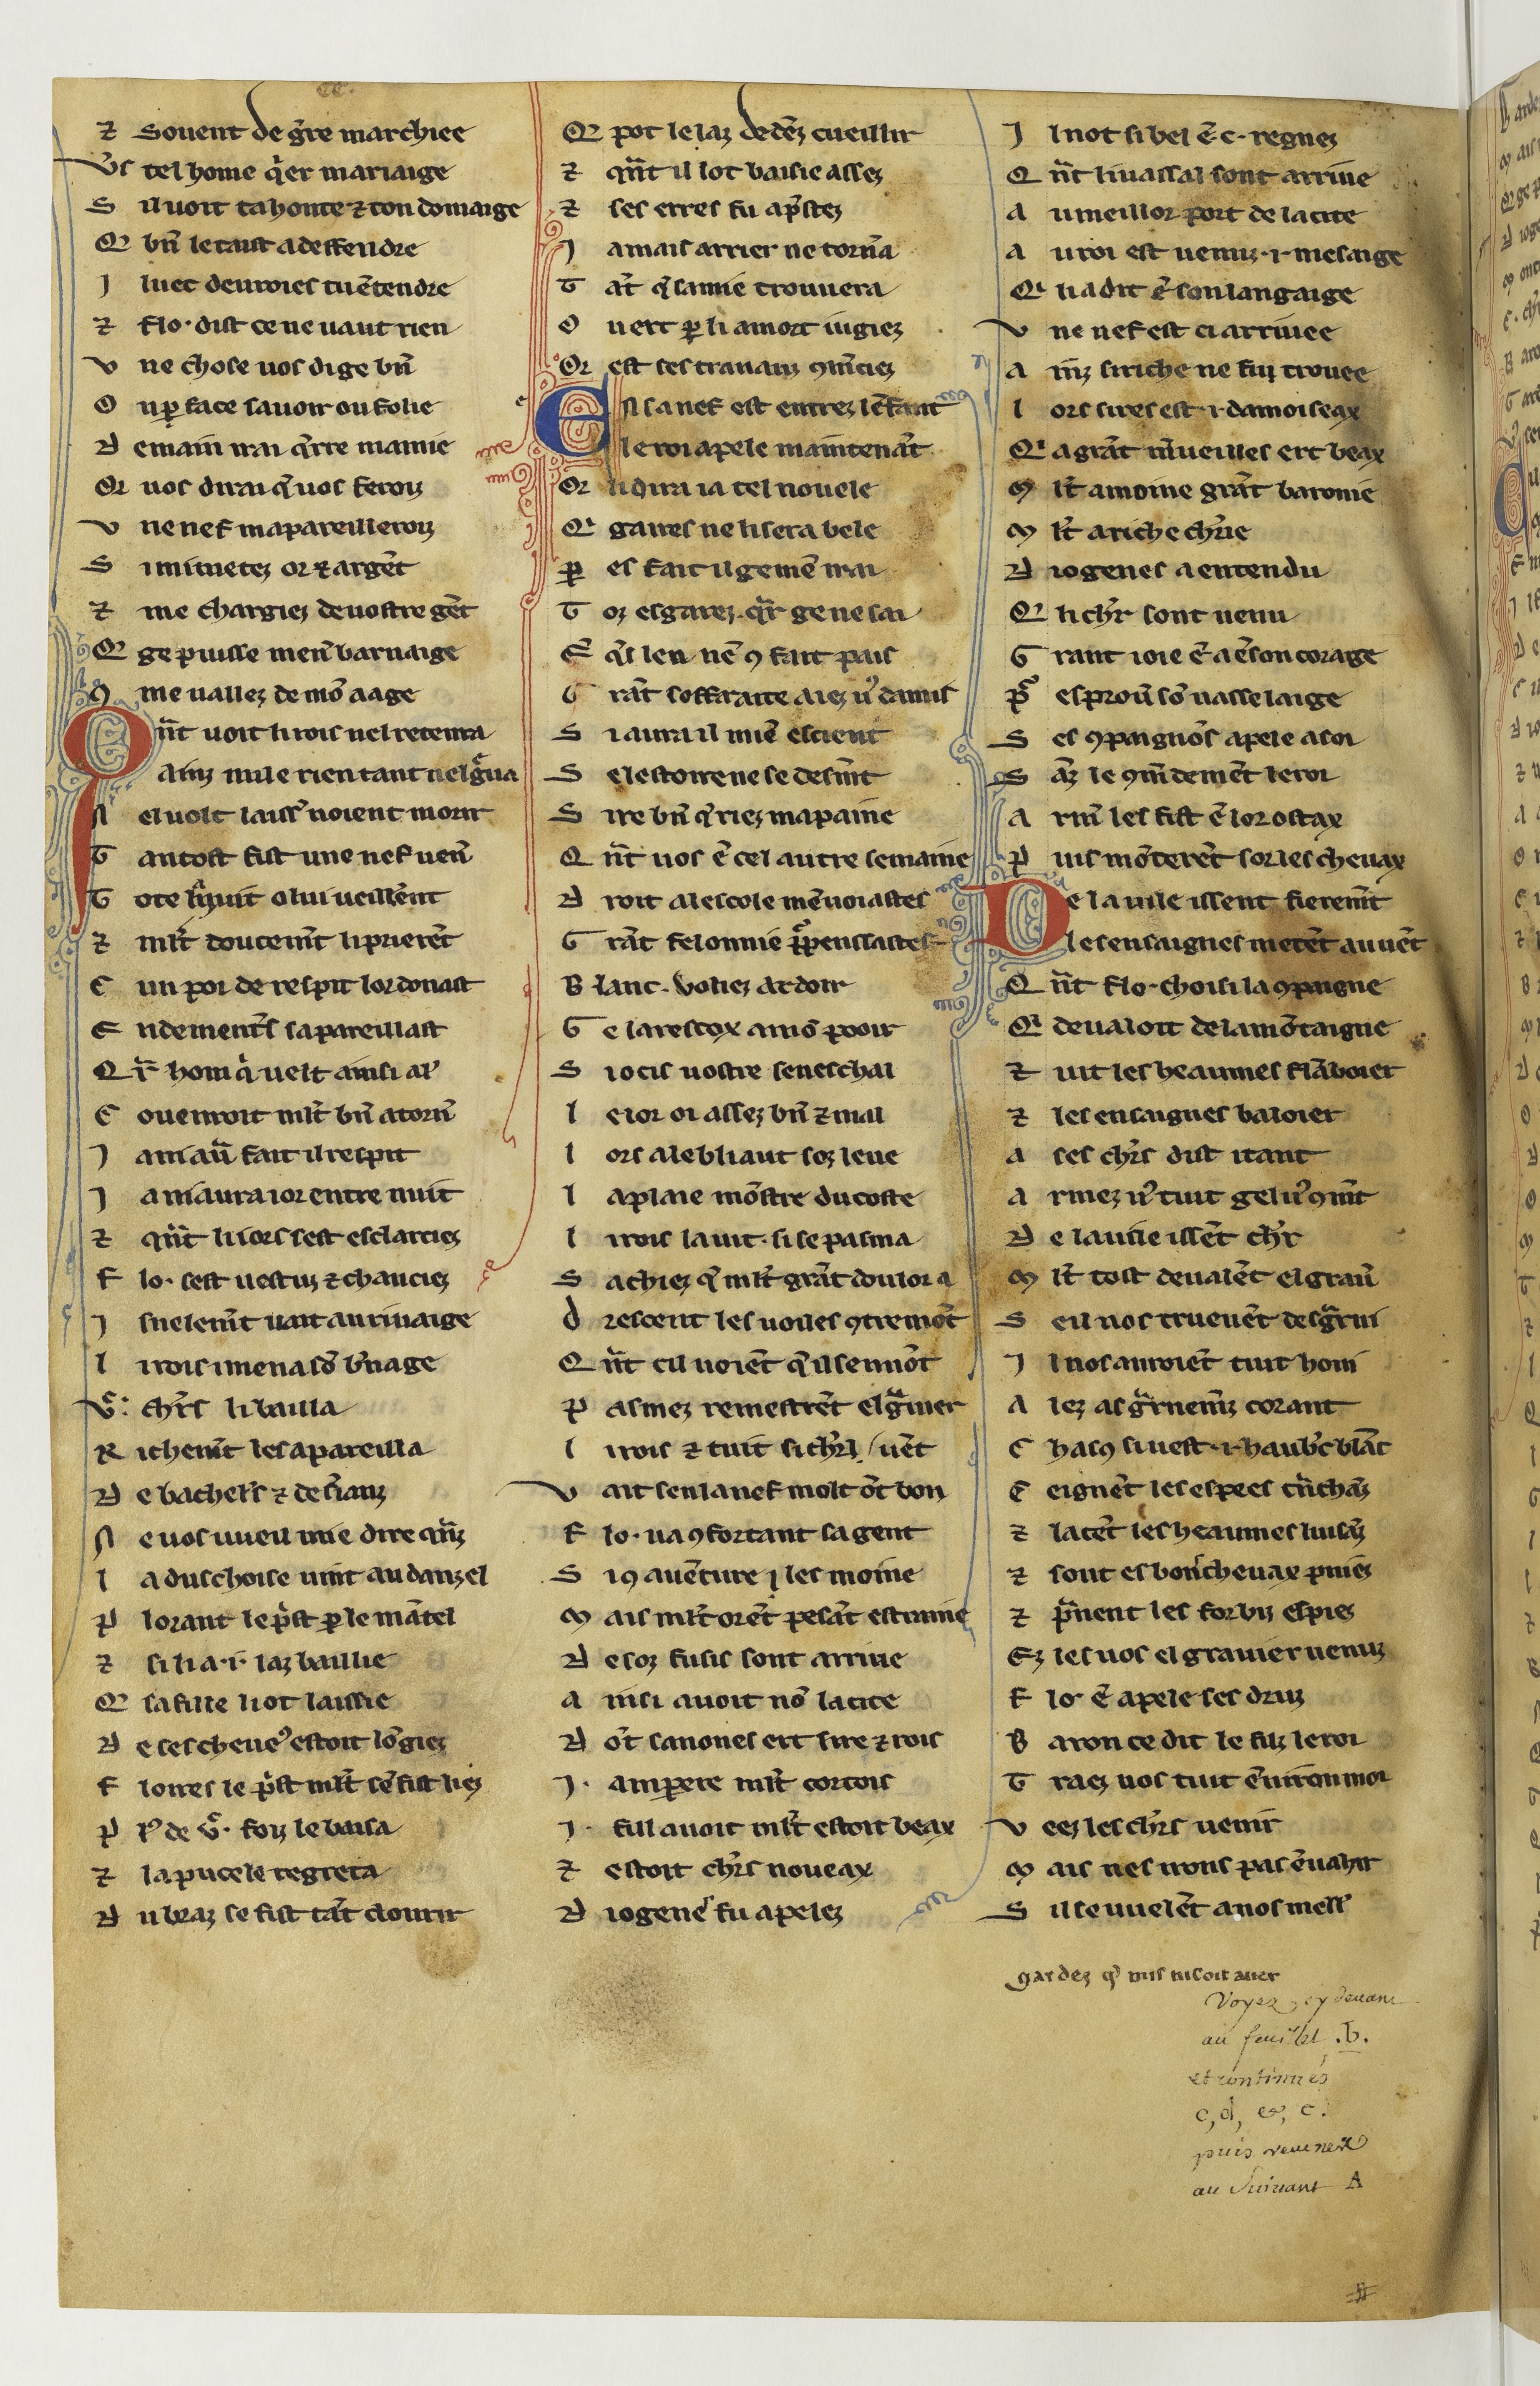 ⁊ Souent de gr̄re marchiee
Vs̄ tel home q̄er mariaige
S il uoit ta honte ⁊ ton domaige
Q bn̄ le taist a deffendre
I luec deuroies tu ētendre
⁊ flo· dist ce ne uaut rien
V ne chose uos dige bn̄
O u ꝑ face sauoir ou folie
D emain irai q̄rre mamie
Or uos dirai q̄ uos feroiz
V ne nef mapareilleroiz
S i mi metez or ⁊ argēt
⁊ me chargiez de uostre gēt
Q ge puisse men̄ barnaige
9 me uallez de mō aage
Qn̄t uoit li rois nel retenra
A inz nule rien tant nel gr̄ua
N el uolt laiss̄ noient morir
T antost fist une nef uen̄
⁊ ml̄t doucem̄t li prierēt
C un poi de respit lor donast
E ndementr̄s sapareillast
Qr̄ hom q̄ uelt ainsi al̄
C ouenroit ml̄t bn̄ atorn̄
I a ni au̅ fait il respit
I a ni aura ior entre nuit
⁊ qn̄t li iors sest esclarciez
F lo· sest uestuz ⁊ chauciez
I snelem̄t uait au riuaige
L i rois i mena sō b̄nage
chr̄s li bailla
R ichem̄t les apareilla
D e bachelr̄s ⁊ de s̄ianz
N e uos uueil mie dire qn̄z
L a duschoise uint au danzel
P lorant le p̄st ꝑ le mātel
⁊ si li a ·i· laz baillie
Q sa fille li ot laissie
D e ses cheue9 estoit lōgiez
F loires le p̄st ml̄t sē fist liez
foiz le baisa
⁊ la pucele regreta
D u braz se fist tāt clourir
Q pot le laz dedēz cueillir
⁊ qn̄t il lot baisie assez
⁊ ses erres fu ap̄stez
I amais arrier ne torn̄a
T āt q̄ samie trouuera
O uert ꝑ li a mort iugiez
Or est ses trauaus 9m̄ciez
En sa nef est entrez lēfant
le roi apele maintenāt
Or li dira ia tel nouele
Q gaires ne li sera bele
ꝑ es fait il ge mē irai
T oz esgarez qr̄ ge ne sai
E q̄s len nē 9 fait pais
G rāt soffraite aiez u9 damis
S i aura il miē escient
S el estoire ne se desm̄t
S ire bn̄ q̄riez ma paine
Qn̄t uos ē cel autre semaine
D roit a lescole mē uoiastes
G rāt felonnie ꝓpenssastes
B lanc· voliez ardoir
G e la rescox a mō pooir
S i ocis uostre seneschal
L e ior oi assez bn̄ ⁊ mal
L ors a le bliaut soz leue
L a plaie mōstre du coste
L i rois la uit· si se pasma
S achiez q̄ ml̄t grāt doulor a
D rescent les uoiles 9tremōt
Qn̄t cil uoiēt q̄ il sen uōt
P asmez remestrēt el gr̄uier
L i rois ⁊ tuit si chr̄l / uēt
V ait sen la nef molt ōt bon
F lo· ua 9fortant sa gent
S i 9 auēture i les moine
M ais ml̄t orēt pesāt estraine
D esoz fusis sont arriue
A insi auoit nō la cite
D ōt sanones ert sire ⁊ rois
I· ampere ml̄t cortois
I· fill auoit ml̄t estoit beax
⁊ estoit chr̄s noueax
D iogenes fu apelez
I l not si bel ē ·c· regnez
Qn̄t li uassal sont arriue
A u meillor port de la cite
A u roi est uenuz ·i· mesaige
Q li a dit ē son langaige
V ne nef est ci arriuee
A īz si riche ne fu trouee
L ors sires est ·i· damoiseax
Q a grāt m̄ueilles ert beax
M l̄t amoine grāt baronie
M l̄t a riche chr̄ie
D iogenes a entendu
Q li chr̄ sont uenu
G rant ioie ē a ē son corage
P̄ esprou̅ sō uasselaige
S es 9paignōs apele a soi
S āz le 9m̄demēt le roi
A rm̄ les fist ē lor ostax
P uis mōterēt sor les cheuax
De la uile issent fierem̄t
les ensaignes metēt au uēt
Qn̄t flo· choisi la 9paigne
Q deualoit de la mōtaigne
⁊ uit les heaumes flāboier
⁊ les ensaignes baloier
A ses chr̄s dist itant
A rmez u9 tuit ge le u9 9m̄t
D e la uile issēt chr̄
M l̄t tost deualēt el grau̅
S eil nos trueuēt desgr̄ni
I l nos auroiēt tuit honi
A lez as gr̄nemēz corant
C has9 si uest ·i· haub̄c blāc
C eignēt les espees tn̄chāz
⁊ lacēt les heaumes luisāz
⁊ sont es bons cheuax pmēs
⁊ p̄nent les forbiz espiez
Ez les uos el grauier uenuz
F lo· ē apele ses druz
B aron ce dit le filz le roi
T raez uos tuit ēuiron moi
V eez les chr̄s uenir
M ais nes irons pas ēuahir
S il se uuelēt a nos mell̄
gardez q̄
Voyez cy deuant
au feuillet .b.
et continués
c, d, &, e.
puis reuenez
au suiuant A